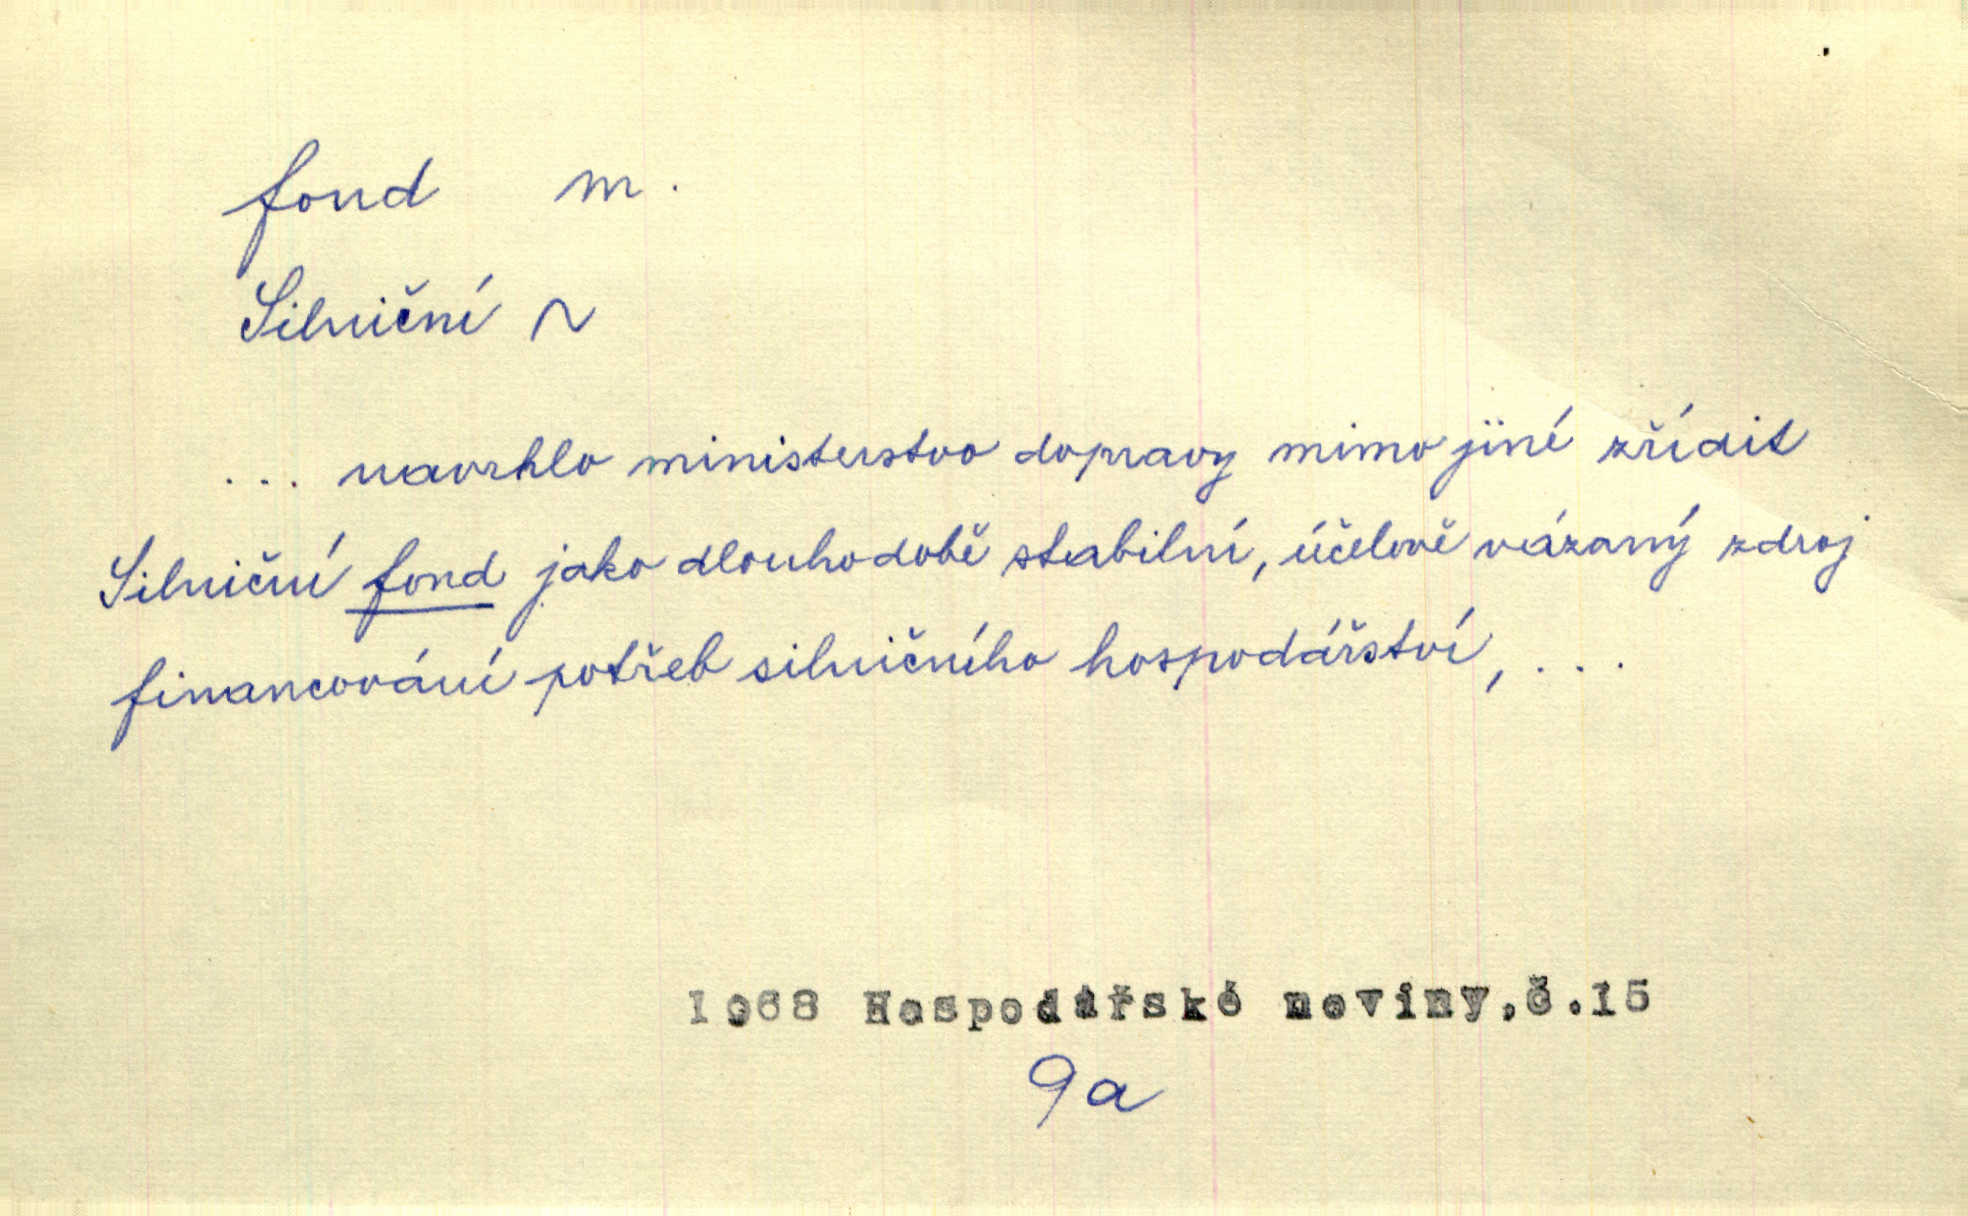 fond m.
Silniční ~
... navrhlo ministerstvo dopravy mimo jiné zřídit
Silniční fond jako dlouhodobě stabilní, účelově vázaný zdroj
financování potřeb silničního hospodářství, ...
1968 Hospodářské noviny,č.15
9a